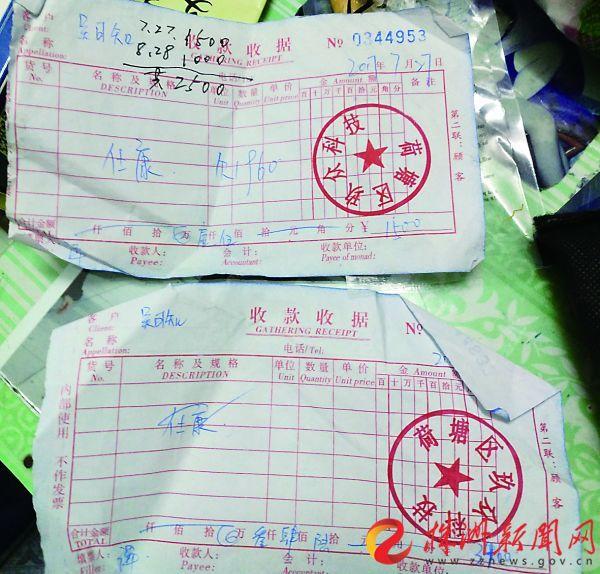 7.27. 1500
8.28 1000
共 2500
客户
Client:
名称
Appellation:
收款收据
GATHERING RECEIPT
№ 0344953
2017年7月27日
货号
No.
名称及规格
DESCRIPTION
单位
Unit
数量
Quantity
单价
Unit price
金 Amount 额
百十万千百拾元角分
备注
仕康
荷塘区玖尔科技
第二联:顾客
合计金额
仟佰拾万仟佰拾元角分 ¥ 1500
收款人:
Payee:
会计:
Accountant:
收款单位:
Payee of monad:
客户
Client:
名称
Appellation:
收款收据
GATHERING RECEIPT
№
电话/Tel:
货号
No.
名称及规格
DESCRIPTION
单位
Unit
数量
Quantity
单价
Unit price
金 Amount
百十万千百拾元
仕康
内部使用 不作发票
荷塘区玖尔科技
第二联:顾客
合计金额
TOTAL
仟佰拾万仟佰拾元
填票人:
Filler:
收款人:
Payee:
会计:
Accountant:
收款单位:
株洲新闻网
www.zznews.gov.cn